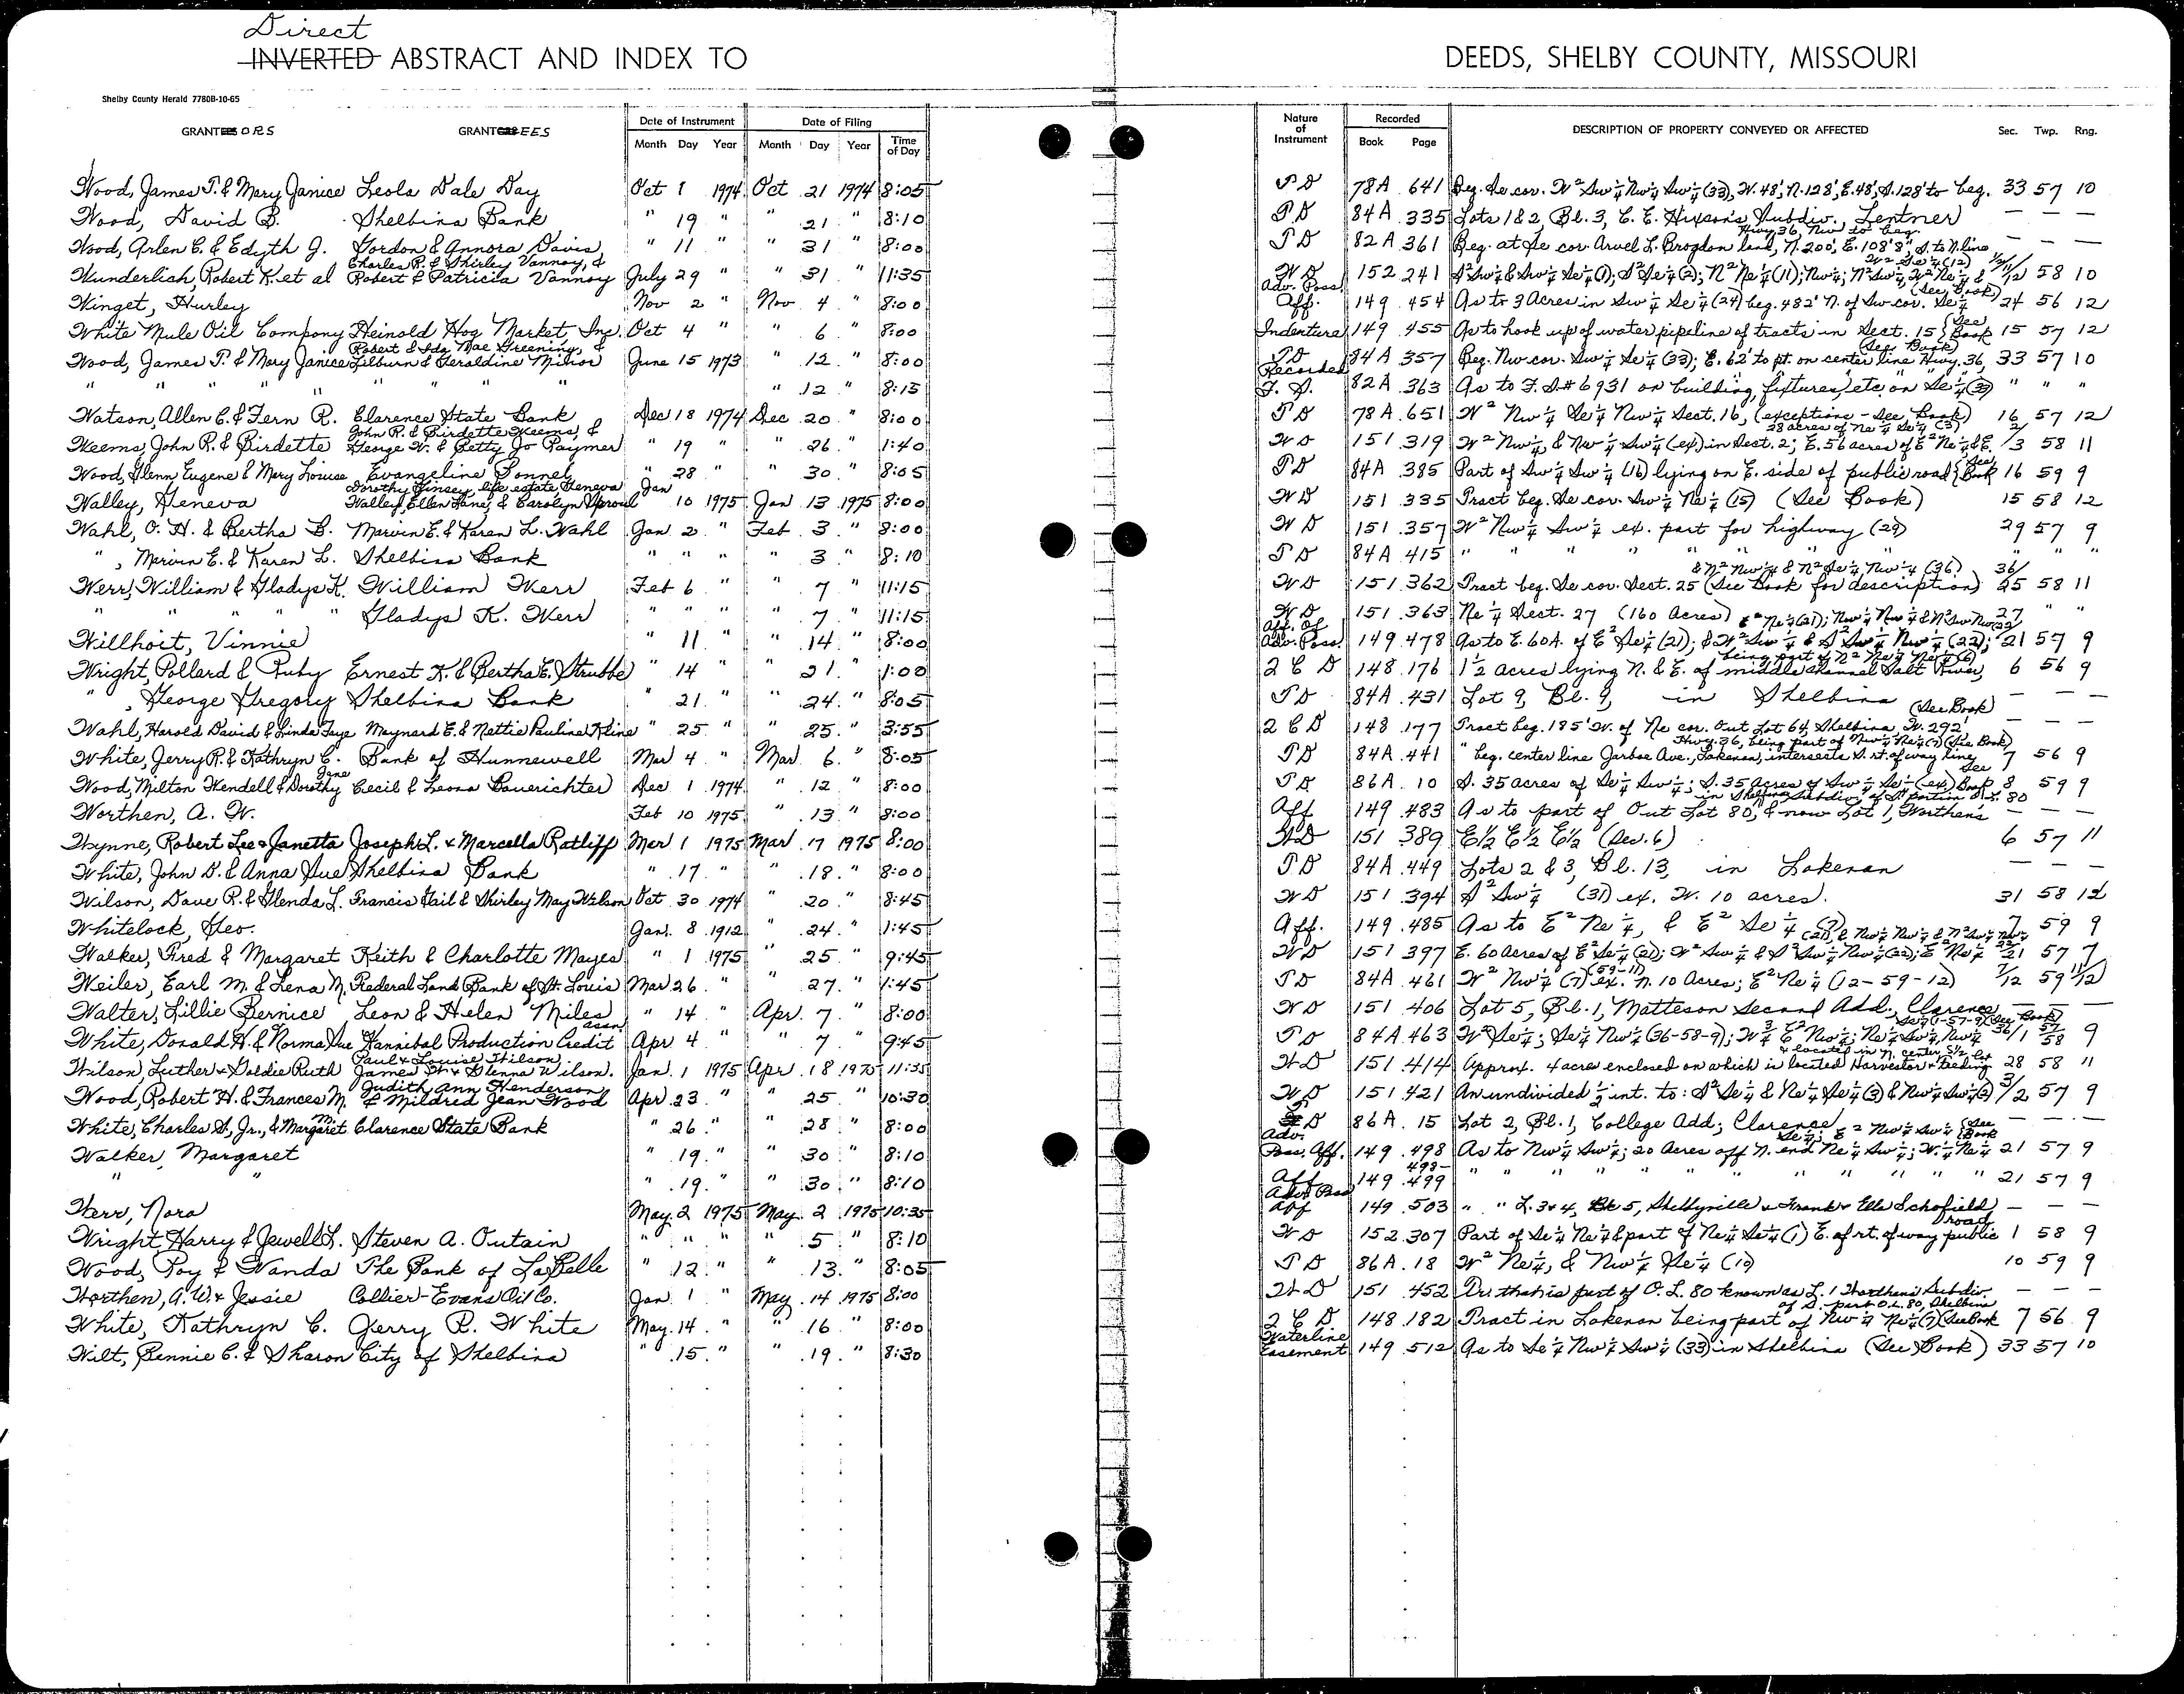 Direct
INVERTED ABSTRACT AND INDEX TO DEEDS, SHELBY COUNTY, MISSOURI
Shelby County Herald 7780B-10-65
GRANTEES ORS GRANTORS EES Date of Instrument Date of Filing Nature of Instrument Recorded DESCRIPTION OF PROPERTY CONVEYED OR AFFECTED Sec. Twp. Rng.
Month Day Year Month Day Year Time of Day Book Page
Wood, James T. & Mary Janice Leola Dale Day Oct 1 1974 Oct 21 1974 8:05 T D 78A 641 Beg. Se cor. W2 Sw 1/4 Nw 1/4 Sw 1/4 (33), W. 48', N. 128', E. 48', S. 128' to beg. 33 57 10
Wood, David B. Shelbina Bank " 19 " " 21 " 8:10 T D 84A 335 Lots 1 & 2, Bl. 3, C. E. Hixson's Subdiv., Lentner — — —
Hwy 36, Nw to beg.
Wood, Arlen C. & Edyth J. Gordon & Annora Davis " 11 " " 31 " 8:00 T D 82A 361 Beg. at Se cor. Arvel L. Brogdon land, N. 200', E. 108'8", S. to N. line — — —
Charles R. & Shirley Vannoy, & W2 Se 1/4 (12)
Wunderlich, Robert K. et al Robert & Patricia Vannoy July 29 " " 31 " 11:35 W D 152 241 S2 Sw 1/4 & Sw 1/4 Se 1/4 (1); S2 Se 1/4 (2); N2 Ne 1/4 (11); Nw 1/4; N2 Sw 1/4, W2 Ne 1/4 & 58 10
Adv. Poss. (See Book)
Winget, Hurley Nov 2 " Nov 4 " 8:00 Aff. 149 454 As to 3 Acres in Sw 1/4 Se 1/4 (24) beg. 482' N. of Sw cor. Se 1/4 24 56 12
White Mule Oil Company Heinold Hog Market, Inc. Oct 4 " " 6 " 8:00 Indenture 149 455 As to hook up of water pipeline of tracts in Sect. 15 (See Book 15 57 12
Robert & Ida Mae Greening, & (See Book)
Wood, James T. & Mary Janice Lilburn & Geraldine Minor June 15 1973 " 12 " 8:00 T D 84A 357 Beg. Nw cor. Sw 1/4 Se 1/4 (33); E. 62' to pt. on center line Hwy. 36, 33 57 10
Recorded
" " " " " " " " 12 " 8:15 F. S. 82A 363 As to F. S. # 6931 on building, fixtures, etc. on Se 1/4 (33) " " "
Watson, Allen C. & Fern R. Clarence State Bank Dec 18 1974 Dec 20 " 8:00 T D 78A 651 W2 Nw 1/4 Se 1/4 Nw 1/4 Sect. 16, (exceptions - See Book) 16 57 12
John R. & Birdette Weems, & 28 acres of Ne 1/4 Se 1/4 (3)
Weems, John R. & Birdette George W. & Betty Jo Paymer " 19 " " 26 " 1:40 W D 151 319 W2 Nw 1/4, & Nw 1/4 Sw 1/4 (ex) in Sect. 2; E. 56 acres of E2 Ne 1/4 & E. 2/3 58 11
Wood, Glenn Eugene & Mary Louise Evangeline Bonnel " 28 " " 30 " 8:05 T D 84A 385 Part of Sw 1/4 Sw 1/4 (16) lying on E. side of public road (See Book 16 59 9
Dorothy Kinsey, life estate, Geneva
Walley, Geneva Walley, Ellen Lane, & Carolyn Sproul Jan 10 1975 Jan 13 1975 8:00 W D 151 335 Tract beg. Se cor. Sw 1/4 Ne 1/4 (15) (See Book) 15 58 12
Wahl, O. H. & Bertha B. Marvin E. & Karen L. Wahl Jan 2 " Feb 3 " 8:00 W D 151 357 W2 Nw 1/4 Sw 1/4 ex. part for highway (29) 29 57 9
", Marvin E. & Karen L. Shelbina Bank " " " " 3 " 8:10 T D 84A 415 " " " " " " " " " "
& N2 Nw 1/4 & N2 Se 1/4 Nw 1/4 (36)
Werr, William & Gladys K. William Werr Feb 6 " " 7 " 11:15 W D 151 362 Tract beg. Se cor. Sect. 25 (See Book for description) 36/25 58 11
" " " " " Gladys K. Werr " " " " 7 " 11:15 W D 151 363 Ne 1/4 Sect. 27 (160 Acres) 27 " "
Aff. Of E2 Ne 1/4 (21); Nw 1/4 Nw 1/4 & N2 Sw Nw (22)
Willhoit, Vinnie " 11 " " 14 " 8:00 Adv. Poss. 149 478 As to E. 60 A. of E2 Se 1/4 (21); & W2 Sw 1/4 & S2 Sw 1/4 Nw 1/4 (22); 21 57 9
being part of N2 Ne 1/4 Ne 1/4 (6)
Wright, Pollard & Ruby Ernest K. & Bertha E. Strubbe " 14 " " 21 " 1:00 2 C D 148 176 1 1/2 acres lying N. & E. of middle channel Salt River, 6 56 9
", George Gregory Shelbina Bank " 21 " " 24 " 8:05 T D 84A 431 Lot 9, Bl. 9, in Shelbina — — —
(See Book)
Wahl, Harold David & Linda Faye Maynard E. & Nettie Pauline Kline " 25 " " 25 " 3:55 2 C D 148 177 Tract beg. 185' W. of Ne cor. Out Lot 64, Shelbina, W. 292' — — —
Hwy. 36, being part of Nw 1/4 Ne 1/4 (7) (See Book)
White, Jerry R. & Kathryn C. Bank of Hunnewell Mar 4 " Mar 6 " 8:05 T D 84A 441 " beg. center line Jarboe Ave., Lakenan, intersects S. rt. of way line 7 56 9
Jane See
Wood, Milton Wendell & Dorothy Cecil & Leona Bauerichter Dec 1 1974 " 12 " 8:00 T D 86A 10 S. 35 acres of Se 1/4 Sw 1/4; S. 35 Acres of Sw 1/4 Se 1/4 (ex) Book 8 59 9
in Shelbina Subdiv. of S. portion O. L. 80
Worthen, A. W. Feb 10 1975 " 13 " 8:00 Aff 149 483 As to part of Out Lot 80, & now Lot 1, Worthen's — —
Wynne, Robert Lee & Janetta Joseph L. & Marcella Ratliff Mar 1 1975 Mar 17 1975 8:00 W D 151 389 E 1/2 E 1/2 E 1/2 (Sec. 6) 6 57 11
White, John D. & Anna Sue Shelbina Bank " 17 " " 18 " 8:00 T D 84A 449 Lots 2 & 3, Bl. 13, in Lakenan — — —
Wilson, Dave R. & Glenda L. Francis Gail & Shirley May Wilson Oct 30 1974 " 20 " 8:45 W D 151 394 S2 Sw 1/4 (31) ex. W. 10 acres. 31 58 12
Whitelock, Geo. Jan. 8 1912 " 24 " 1:45 Aff. 149 485 As to E2 Ne 1/4, & E2 Se 1/4 (7) 7 59 9
(21), & Nw 1/4 Nw 1/4 & N2 Sw 1/4 Nw 1/4
Walker, Fred & Margaret Keith & Charlotte Mayes " 1 1975 " 25 " 9:45 W D 151 397 E. 60 Acres of E2 Se 1/4 (21); W2 Sw 1/4 & S2 Sw 1/4 Nw 1/4 (22); E2 Ne 1/4 22/21 57 7
(59-11)
Weiler, Earl M. & Lena M. Federal Land Bank of St. Louis Mar 26 " " 27 " 1:45 T D 84A 461 W2 Nw 1/4 (7) ex. N. 10 Acres; E2 Ne 1/4 (12-59-12) 7/12 59 11/12
Walter, Lillie Bernice Leon & Helen Miles " 14 " Apr. 7 " 8:00 W D 151 406 Lot 5, Bl. 1, Matteson Second Add., Clarence — — —
assn. Se 1/4 (1-57-9) (See Book)
White, Donald H. & Norma Sue Hannibal Production Credit Apr 4 " " 7 " 9:45 T D 84A 463 W2 Se 1/4; Se 1/4 Nw 1/4 (36-58-9); W 3/4 E2 Nw 1/4; Ne 1/4 Sw 1/4, Nw 1/4 36/1 57/58 9
Paul & Louise Wilson & located in N. center S 1/2 lot
Wilson Luther & Goldie Ruth James W. & Glenna Wilson. Jan. 1 1975 Apr. 18 1975 11:35 W D 151 414 Approx. 4 acres enclosed on which is located Harvestor & feeding 28 58 11
Judith Ann Henderson
Wood, Robert H. & Frances M. & Mildred Jean Wood Apr 23 " " 25 " 10:30 W D 151 421 An undivided 1/2 int. to: S2 Se 1/4 & Ne 1/4 Se 1/4 (3) & Nw 1/4 Sw 1/4 (2) 3/2 57 9
White, Charles S., Jr., & Margaret M. Clarence State Bank " 26 " " 28 " 8:00 T D 86A 15 Lot 2, Bl. 1, College Add; Clarence — — —
Adv. Se 1/4; E2 Nw 1/4 Sw 1/4 (See Book
Walker, Margaret " 19 " " 30 " 8:10 Poss. Aff. 149 498 As to Nw 1/4 Sw 1/4; 20 Acres off N. end Ne 1/4 Sw 1/4; W. 1/4 Ne 1/4 21 57 9
" " " 19 " " 30 " 8:10 Aff 149 498-499 " " " " " " " " " " " 21 57 9
Adv. Poss
Werr, Nora May 2 1975 May 2 1975 10:35 Aff 149 503 " " L. 3 & 4, Bk 5, Shelbyville & Frank & Ella Schofield — — —
road
Wright Harry & Jewell L. Steven A. Outain " " " " 5 " 8:10 W D 152 307 Part of Se 1/4 Ne 1/4 & part of Ne 1/4 Se 1/4 (1) E. of rt. of way public 1 58 9
Wood, Roy & Wanda The Bank of LaBelle " 12 " " 13 " 8:05 T D 86A 18 W2 Ne 1/4, & Nw 1/4 Se 1/4 (10) 10 59 9
Worthen, A. W. & Jessie Collier-Evans Oil Co. Jan. 1 " May 14 1975 8:00 W D 151 452 that is part of O. L. 80 known as L. 1 Worthen's Subdiv. — — —
of S. part O.L. 80, Shelbina
White, Kathryn C. Jerry R. White May 14 " " 16 " 8:00 2 C D 148 182 Tract in Lakenan being part of Nw 1/4 Ne 1/4 (7) (See Book 7 56 9
Waterline
Wilt, Bennie C. & Sharon City of Shelbina " 15 " " 19 " 8:30 Easement 149 512 As to Se 1/4 Nw 1/4 Sw 1/4 (33) in Shelbina (See Book) 33 57 10